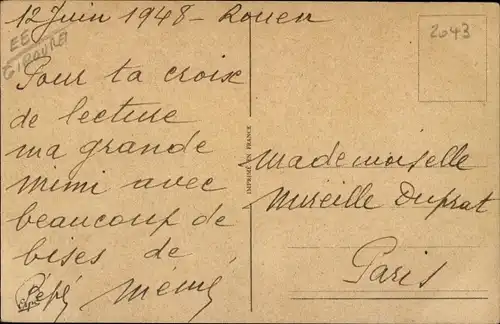 12 Juin 1948 - Rouen
2043
Pour ta croix
de lecture
ma grande
mimi avec
beaucoup de
bises de
Pépé Mémé
IMPRIMÉ EN FRANCE
Mademoiselle
Mireille Duprat
Paris